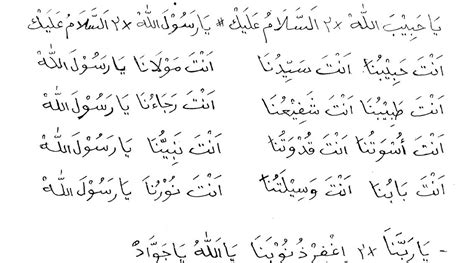 يَا حَبِيْبَ اللهْ ×٢ اَلسَّلَامُ عَلَيْكْ # يَا رَسُوْلَ اللهْ ×٢ اَلسَّلَامُ عَلَيْكْ
اَنْتَ حَبِيْبُنَا اَنْتَ سَيِّدُنَا اَنْتَ مَوْلَانَا يَا رَسُوْلَ اللهْ
اَنْتَ طَبِيْبُنَا اَنْتَ شَفِيْعُنَا اَنْتَ رَجَاءُنَا يَا رَسُوْلَ اللهْ
اَنْتَ اُسْوَتُنَا اَنْتَ قُدْوَتُنَا اَنْتَ نَبِيُّنَا يَا رَسُوْلَ اللهْ
اَنْتَ بَابُنَا اَنْتَ وَسِيْلَتُنَا اَنْتَ نُوْرُنَا يَا رَسُوْلَ اللهْ
- يَا رَبَّنَا ×٢ اِغْفِرْ ذُنُوْبَنَا يَا اَللهُ يَا جَوَّادْ